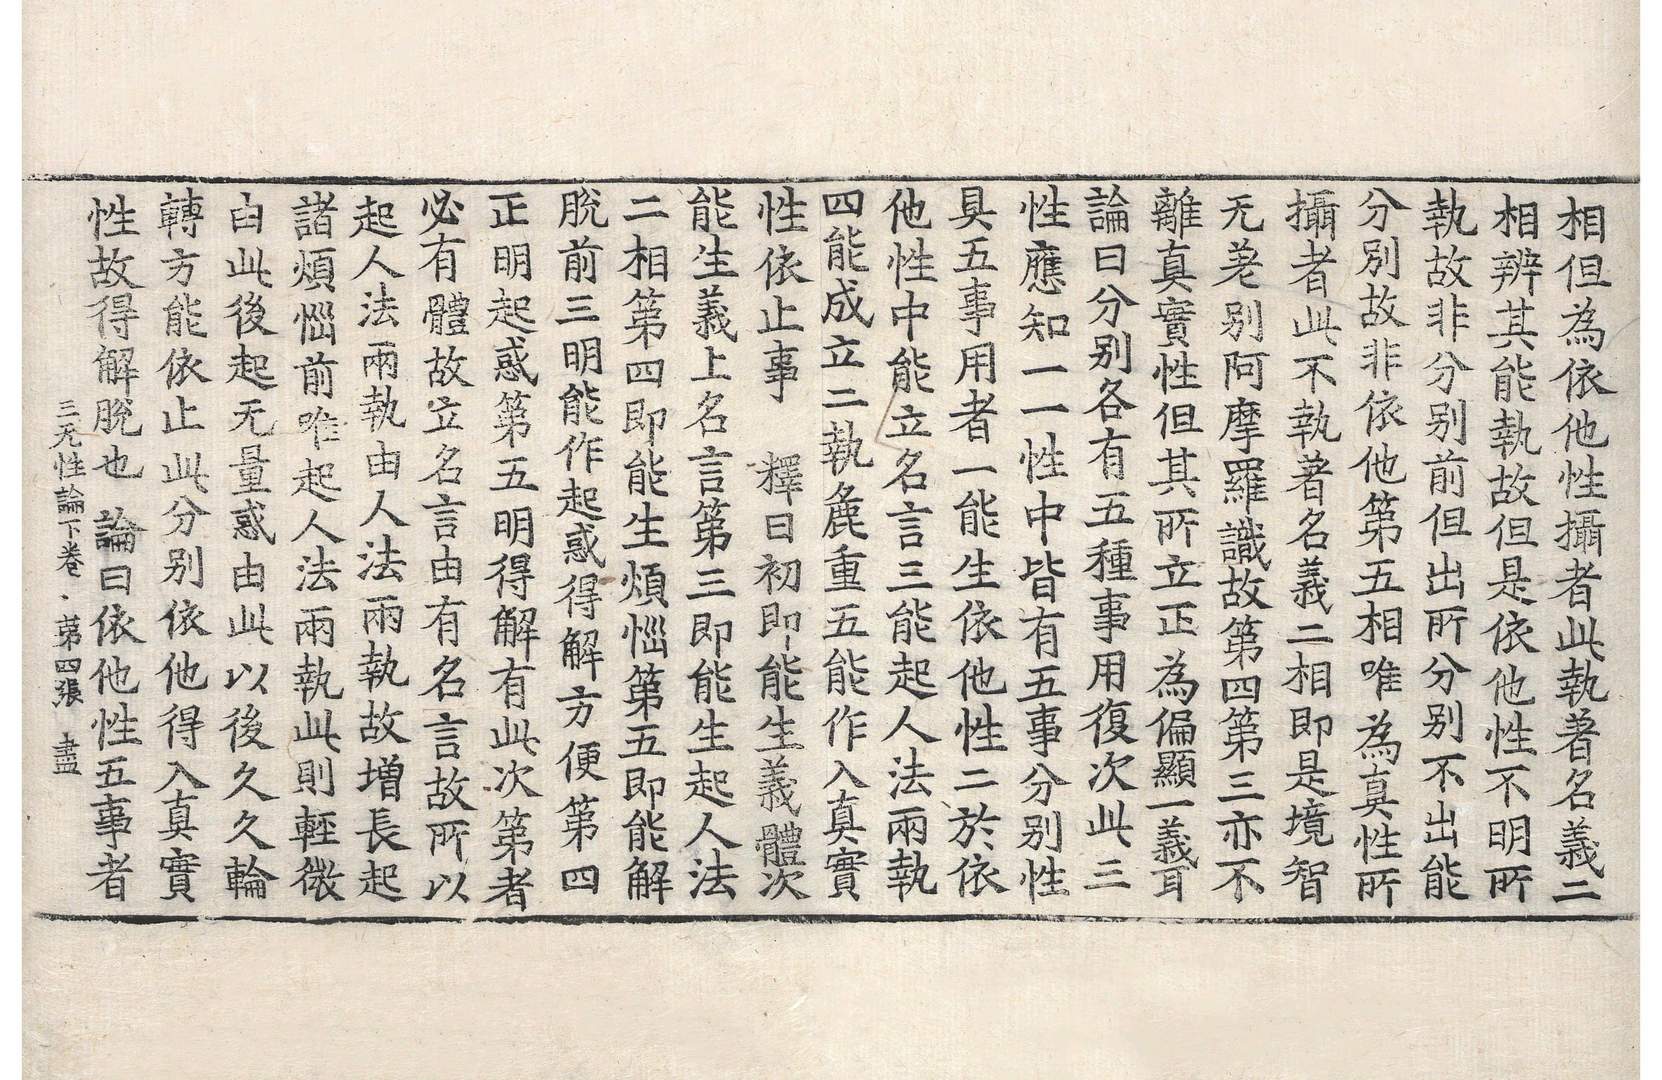 相但為依他性攝者此執著名義二
相辨其能執故但是依他性不明所
執故非分別前但出所分別不出能
分別故非依他第五相唯為真性所
攝者此不執著名義二相即是境智
无差別阿摩羅識故第四第三亦不
離真實性但其所立正為偏顯一義耳
論曰分別各有五種事用復次此三
性應知一一性中皆有五事分別性
具五事用者一能生依他性二於依
他性中能立名言三能起人法兩執
四能成立二執麁重五能作入真實
性依止事　釋曰初即能生義體次
能生義上名言第三即能生起人法
二相第四即能生煩惱第五即能解
脫前三明能作起惑得解方便第四
正明起惑第五明得解有此次第者
必有體故立名言由有名言故所以
起人法兩執由人法兩執故增長起
諸煩惱前唯起人法兩執此則輕微
自此後起无量惑由此以後久久輪
轉方能依止此分別依他得入真實
性故得解脫也　論曰依他性五事者
三无性論下卷．第四張　盡